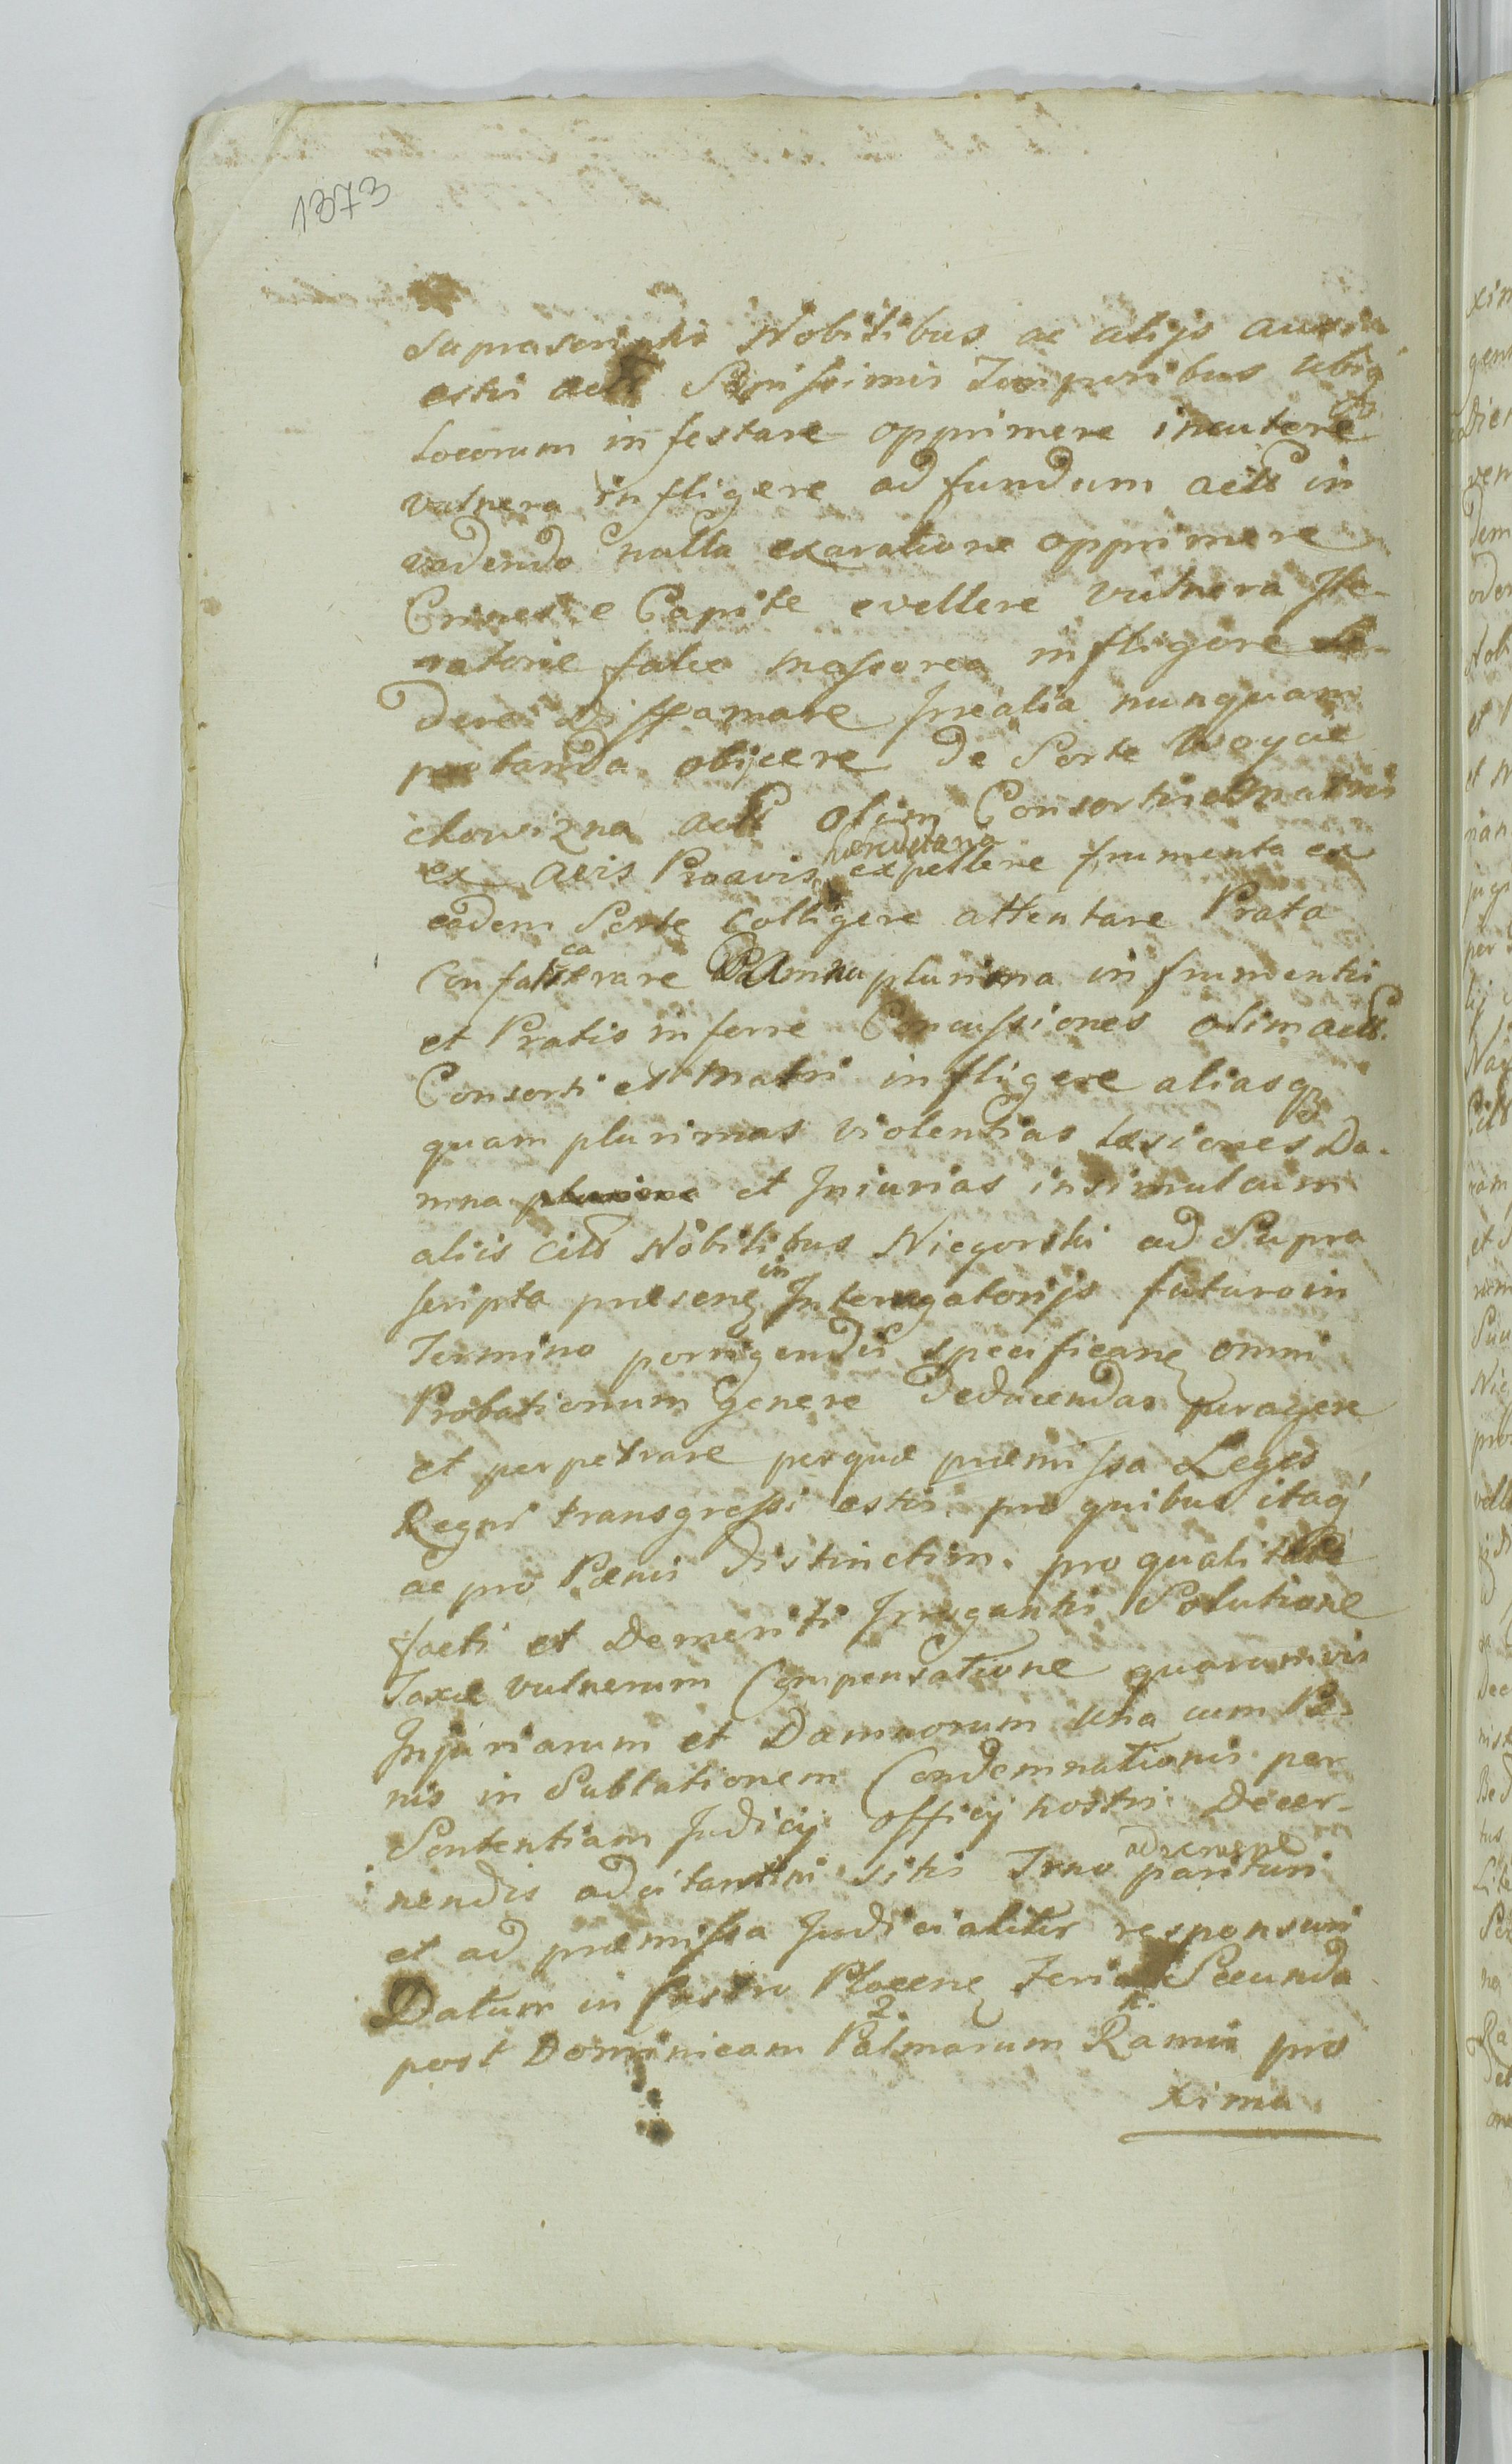 1373
Suprascriptis Nobilibus ac alijs ausi
estis actt Sæpissimis Temporibus ubiq
locorum infestare opprimere incutere
vulnera infligere ad fundum actt in
vadendo nulla exaratione opprimere
Crines e Capite evellere vulnera Ite-
ratorie falce messorea infligere
dere diffamare Irrealia nunquam
probanda objicere de Sorte Woycie
chowizna actt olim Consortis Matris
ex Avis Proavis hæreditaria expellere frumenta ex
eadem Sorte Colligere attentare Prata
Confalcare Damna plurima in frumentis
et Pratis inferre Concussiones olim actt.
Consorti et Matri infligere aliasq
quam plurimas violentias læsiones Da-
mna plurima et Injurias insimul cum
aliis citt Nobilibus Niegorski ad Supra
scripta præsen in Interrogatorijs futuro in
Termino porrigendis specifican omni
Probationum genere deducendas peragere
et perpetrare perquæ præmissa Leges
Regni transgressi estis pro quibus itaq
ac pro Pænis distinctim pro qualitate
facti et demeriti Irrogantis Solutione
Taxæ vulnerum Compensatione quarumvis
Injuriarum et Damnorum una cum Pæ-
nis in Sublationem Condemnationis per
Sententiam Judicij officij nostri Decer-
nendis adcitantini sitis Trno parituri
et ad præmissa Judicialiter responsuri
Datum in Castro Plocen Feria Secunda
post Dominicam Palmarum 2. Ramis pro
xima